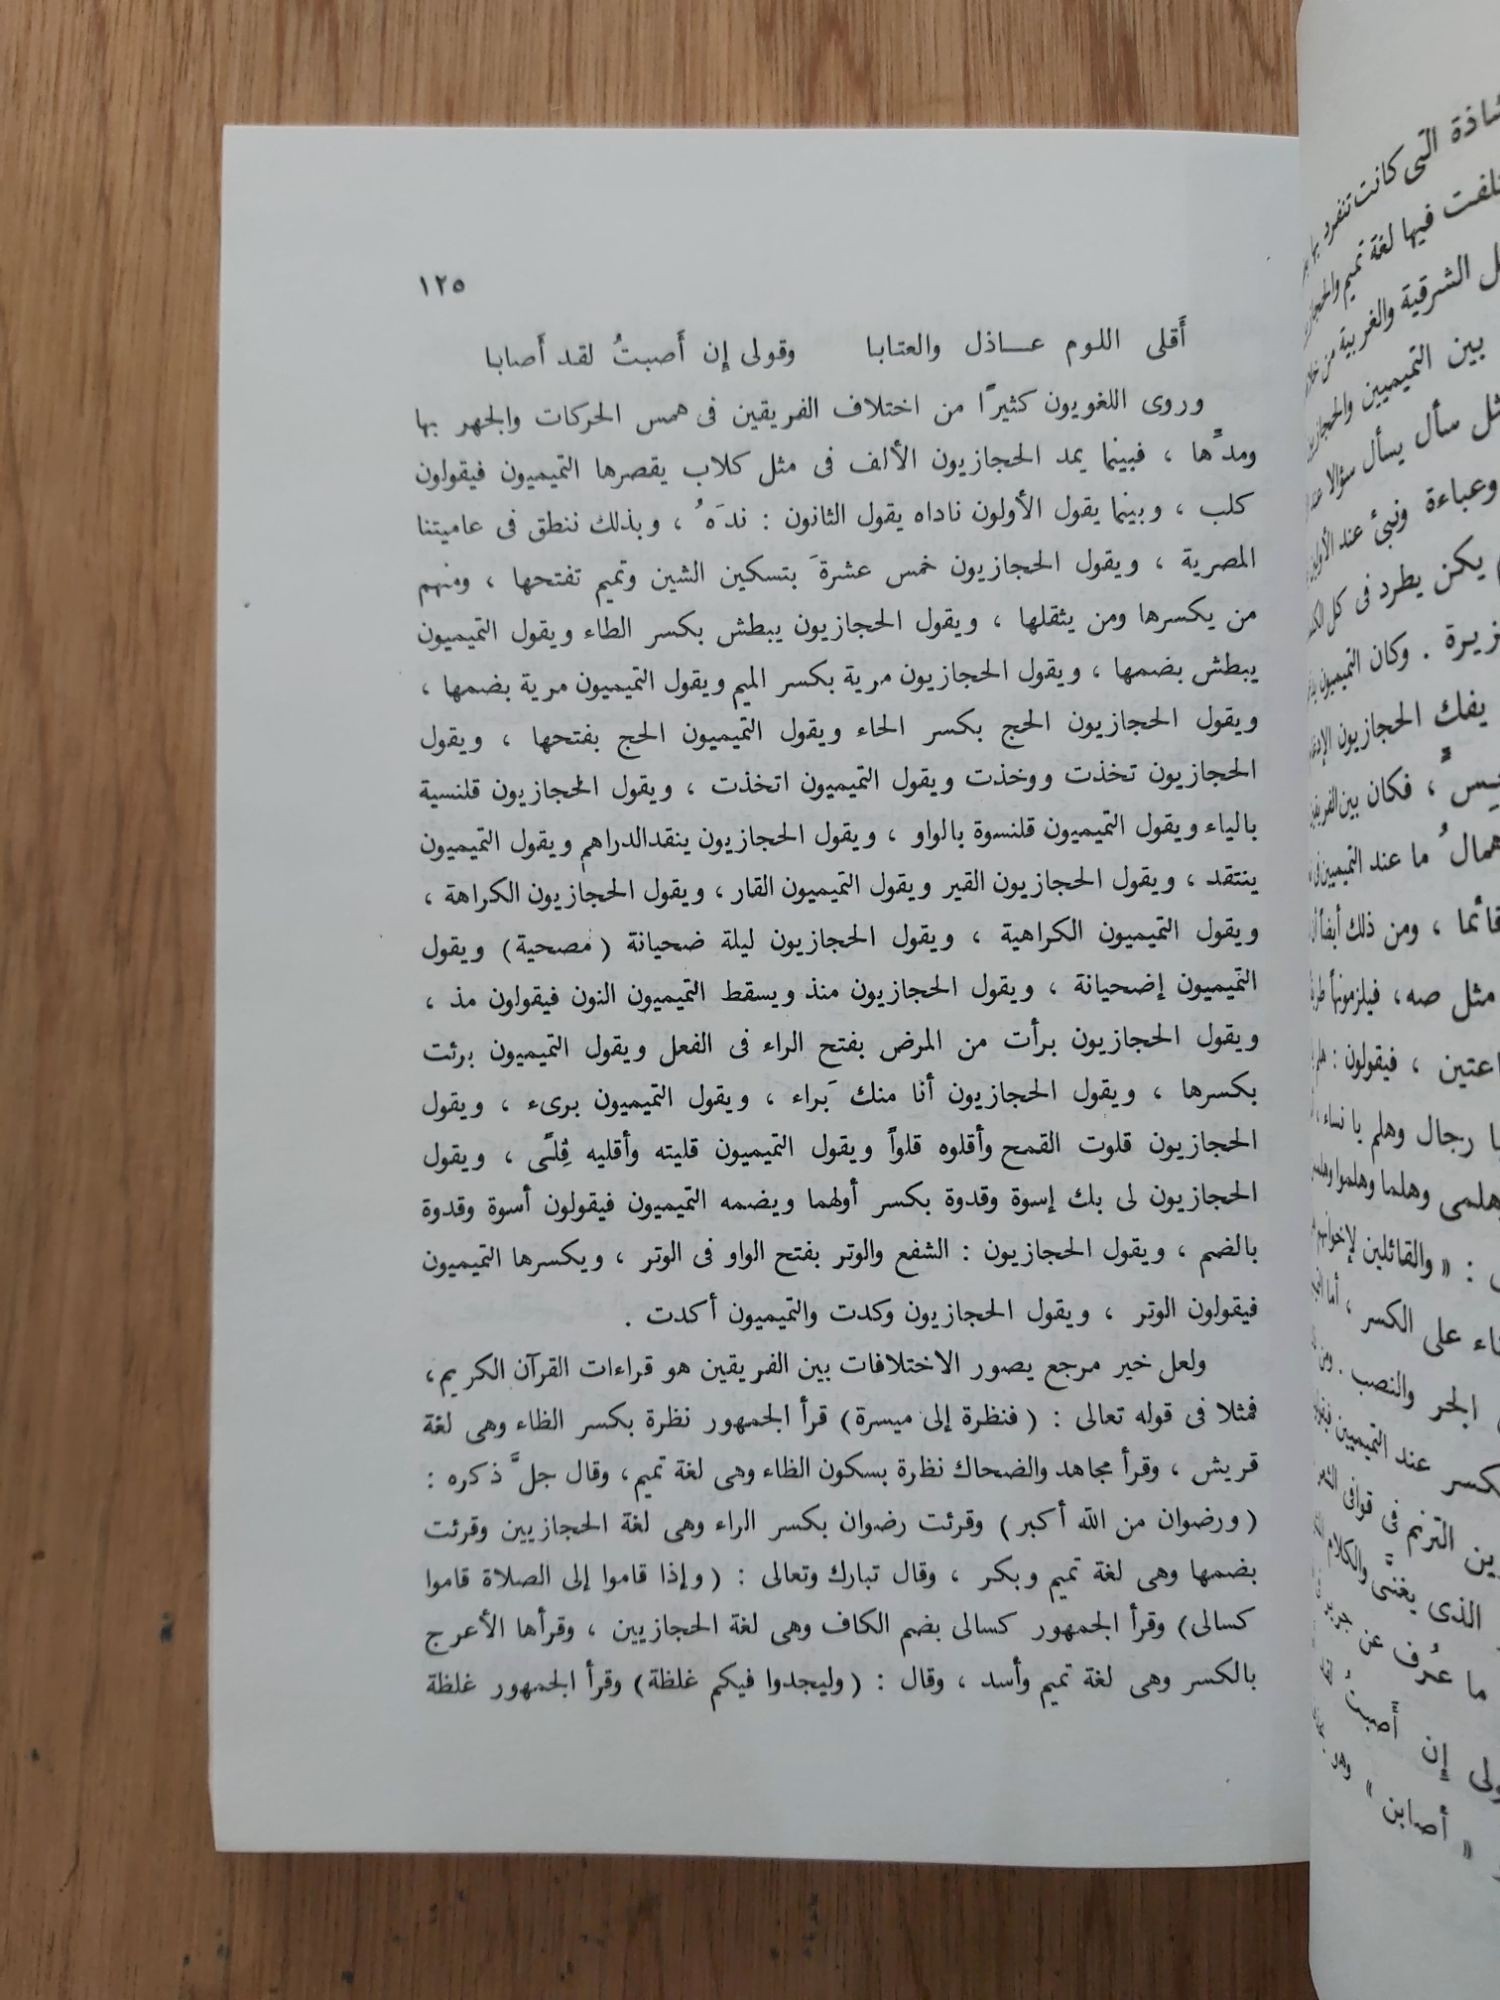 ١٢٥
أَقلى اللوم عـــاذل والعتابا وقولى إن أَصبتُ لقد أَصابا
وروى اللغويون كثيرًا من اختلاف الفريقين فى همس الحركات والجهر بها
ومدِّها ، فبينما يمد الحجازيون الألف فى مثل كلاب يقصرها التميميون فيقولون
كلب ، وبينما يقول الأولون ناداه يقول الثانون : ندَهُ ، وبذلك ننطق فى عاميتنا
المصرية ، ويقول الحجازيون خمس عشرةَ بتسكين الشين وتميم تفتحها ، ومنهم
من يكسرها ومن يثقلها ، ويقول الحجازيون يبطش بكسر الطاء ويقول التميميون
يبطش بضمها ، ويقول الحجازيون مرية بكسر الميم ويقول التميميون مرية بضمها ،
ويقول الحجازيون الحج بكسر الحاء ويقول التميميون الحج بفتحها ، ويقول
الحجازيون تخذت ووخذت ويقول التميميون اتخذت ، ويقول الحجازيون قلنسية
بالياء ويقول التميميون قلنسوة بالواو ، ويقول الحجازيون ينقدالدراهم ويقول التميميون
ينتقد ، ويقول الحجازيون القير ويقول التميميون القار ، ويقول الحجازيون الكراهة ،
ويقول التميميون الكراهية ، ويقول الحجازيون ليلة ضحيانة (مصحية) ويقول
التميميون إضحيانة ، ويقول الحجازيون منذ ويسقط التميميون النون فيقولون مذ ،
ويقول الحجازيون برأت من المرض بفتح الراء فى الفعل ويقول التميميون برئت
بكسرها ، ويقول الحجازيون أنا منك بَراء ، ويقول التميميون برىء ، ويقول
الحجازيون قلوت القمح وأقلوه قلواً ويقول التميميون قليته وأقليه قِلًى ، ويقول
الحجازيون لى بك إسوة وقدوة بكسر أولهما ويضمه التميميون فيقولون أسوة وقدوة
بالضم ، ويقول الحجازيون : الشفع والوتر بفتح الواو فى الوتر ، ويكسرها التميميون
فيقولون الوتر ، ويقول الحجازيون وكدت والتميميون أكدت .
ولعل خير مرجع يصور الاختلافات بين الفريقين هو قراءات القرآن الكريم،
فمثلا فى قوله تعالى : (فنظرة إلى ميسرة) قرأ الجمهور نظرة بكسر الظاء وهى لغة
قريش ، وقرأ مجاهد والضحاك نظرة بسكون الظاء وهى لغة تميم، وقال جلَّ ذكره :
(ورضوان من الله أكبر) وقرئت رضوان بكسر الراء وهى لغة الحجازيين وقرئت
بضمها وهى لغة تميم وبكر ، وقال تبارك وتعالى : (وإذا قاموا إلى الصلاة قاموا
كسالى) وقرأ الجمهور كسالى بضم الكاف وهى لغة الحجازيين ، وقرأها الأعرج
بالكسر وهى لغة تميم وأسد ، وقال : (وليجدوا فيكم غلظة) وقرأ الجمهور غلظة
التى كانت تنفرد
فيها لغة تميم
الشرقية والغربية من
بين التميميين
سأل يسأل سؤالا
وعباءة ونبئ عند
يكن يطرد فى كل
وكان التميميون
يفك الحجازيون
، فكان بين
ما عند التميميين
قائما ، ومن ذلك أيضاً
مثل صه، فيلزمونها
، فيقولون :
رجال وهلم يا نساء
وهلمى وهلما وهلموا
: « والقائلين لإخوانهم
على الكسر ، أما
الجر والنصب .
عند التميميين
الترنم فى قوافى
الذى يغنى والكلام
ما عُرف عن جرير
إن أَصبتُ
« أصابن »